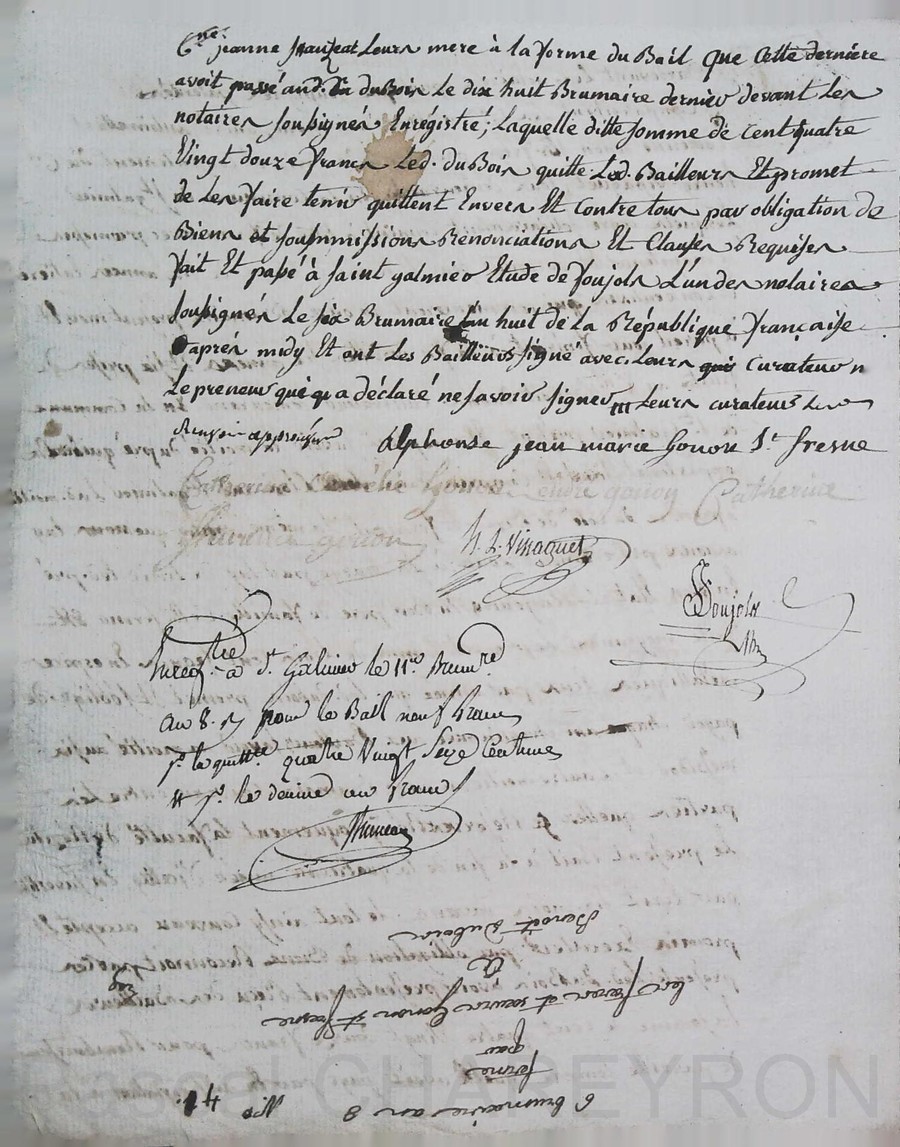 Cne. jeanne leurs mere à la forme du Bail que Cette derniere
avoit passé aud. du Bois Le dix huit Brumaire dernier devant Les
notaires soussignés Enrégistré; Laquelle ditte somme de cent quatre
Vingt douze francs Led. duBois quitte Lesd. Bailleurs Et promet
de Les faire tenir quittent Envers Et Contre tous par obligation de
Biens et soummissions Renonciations Et Clauses Requises
fait Et passé à saint galmier Etude de foujols L'un des notaires
soussignés Le six Brumaire L'an huit de La République française
aprés midy Et ont Les Bailleurs signé avec Leurs Curateur n
Le preneur qui a déclaré ne savoir signer Leurs curateurs
Renvoi approuvé
alphonse jean marie Gonon St. fresne
Catherine Gonon Gonon Catherine
gonon
Foujols
Enregtré à St. Galmier le 11e Brumre
an 8. pour le Bail neuf francs
pr. la quittce quatre Vingt Seize Centimes
pr. le decime un franc
6 brumaire an 8
No 41.
ferme
par
les freres et soeurs Gonon st fresne
A
Benoît Dubois
Pascal CHAPEYRON